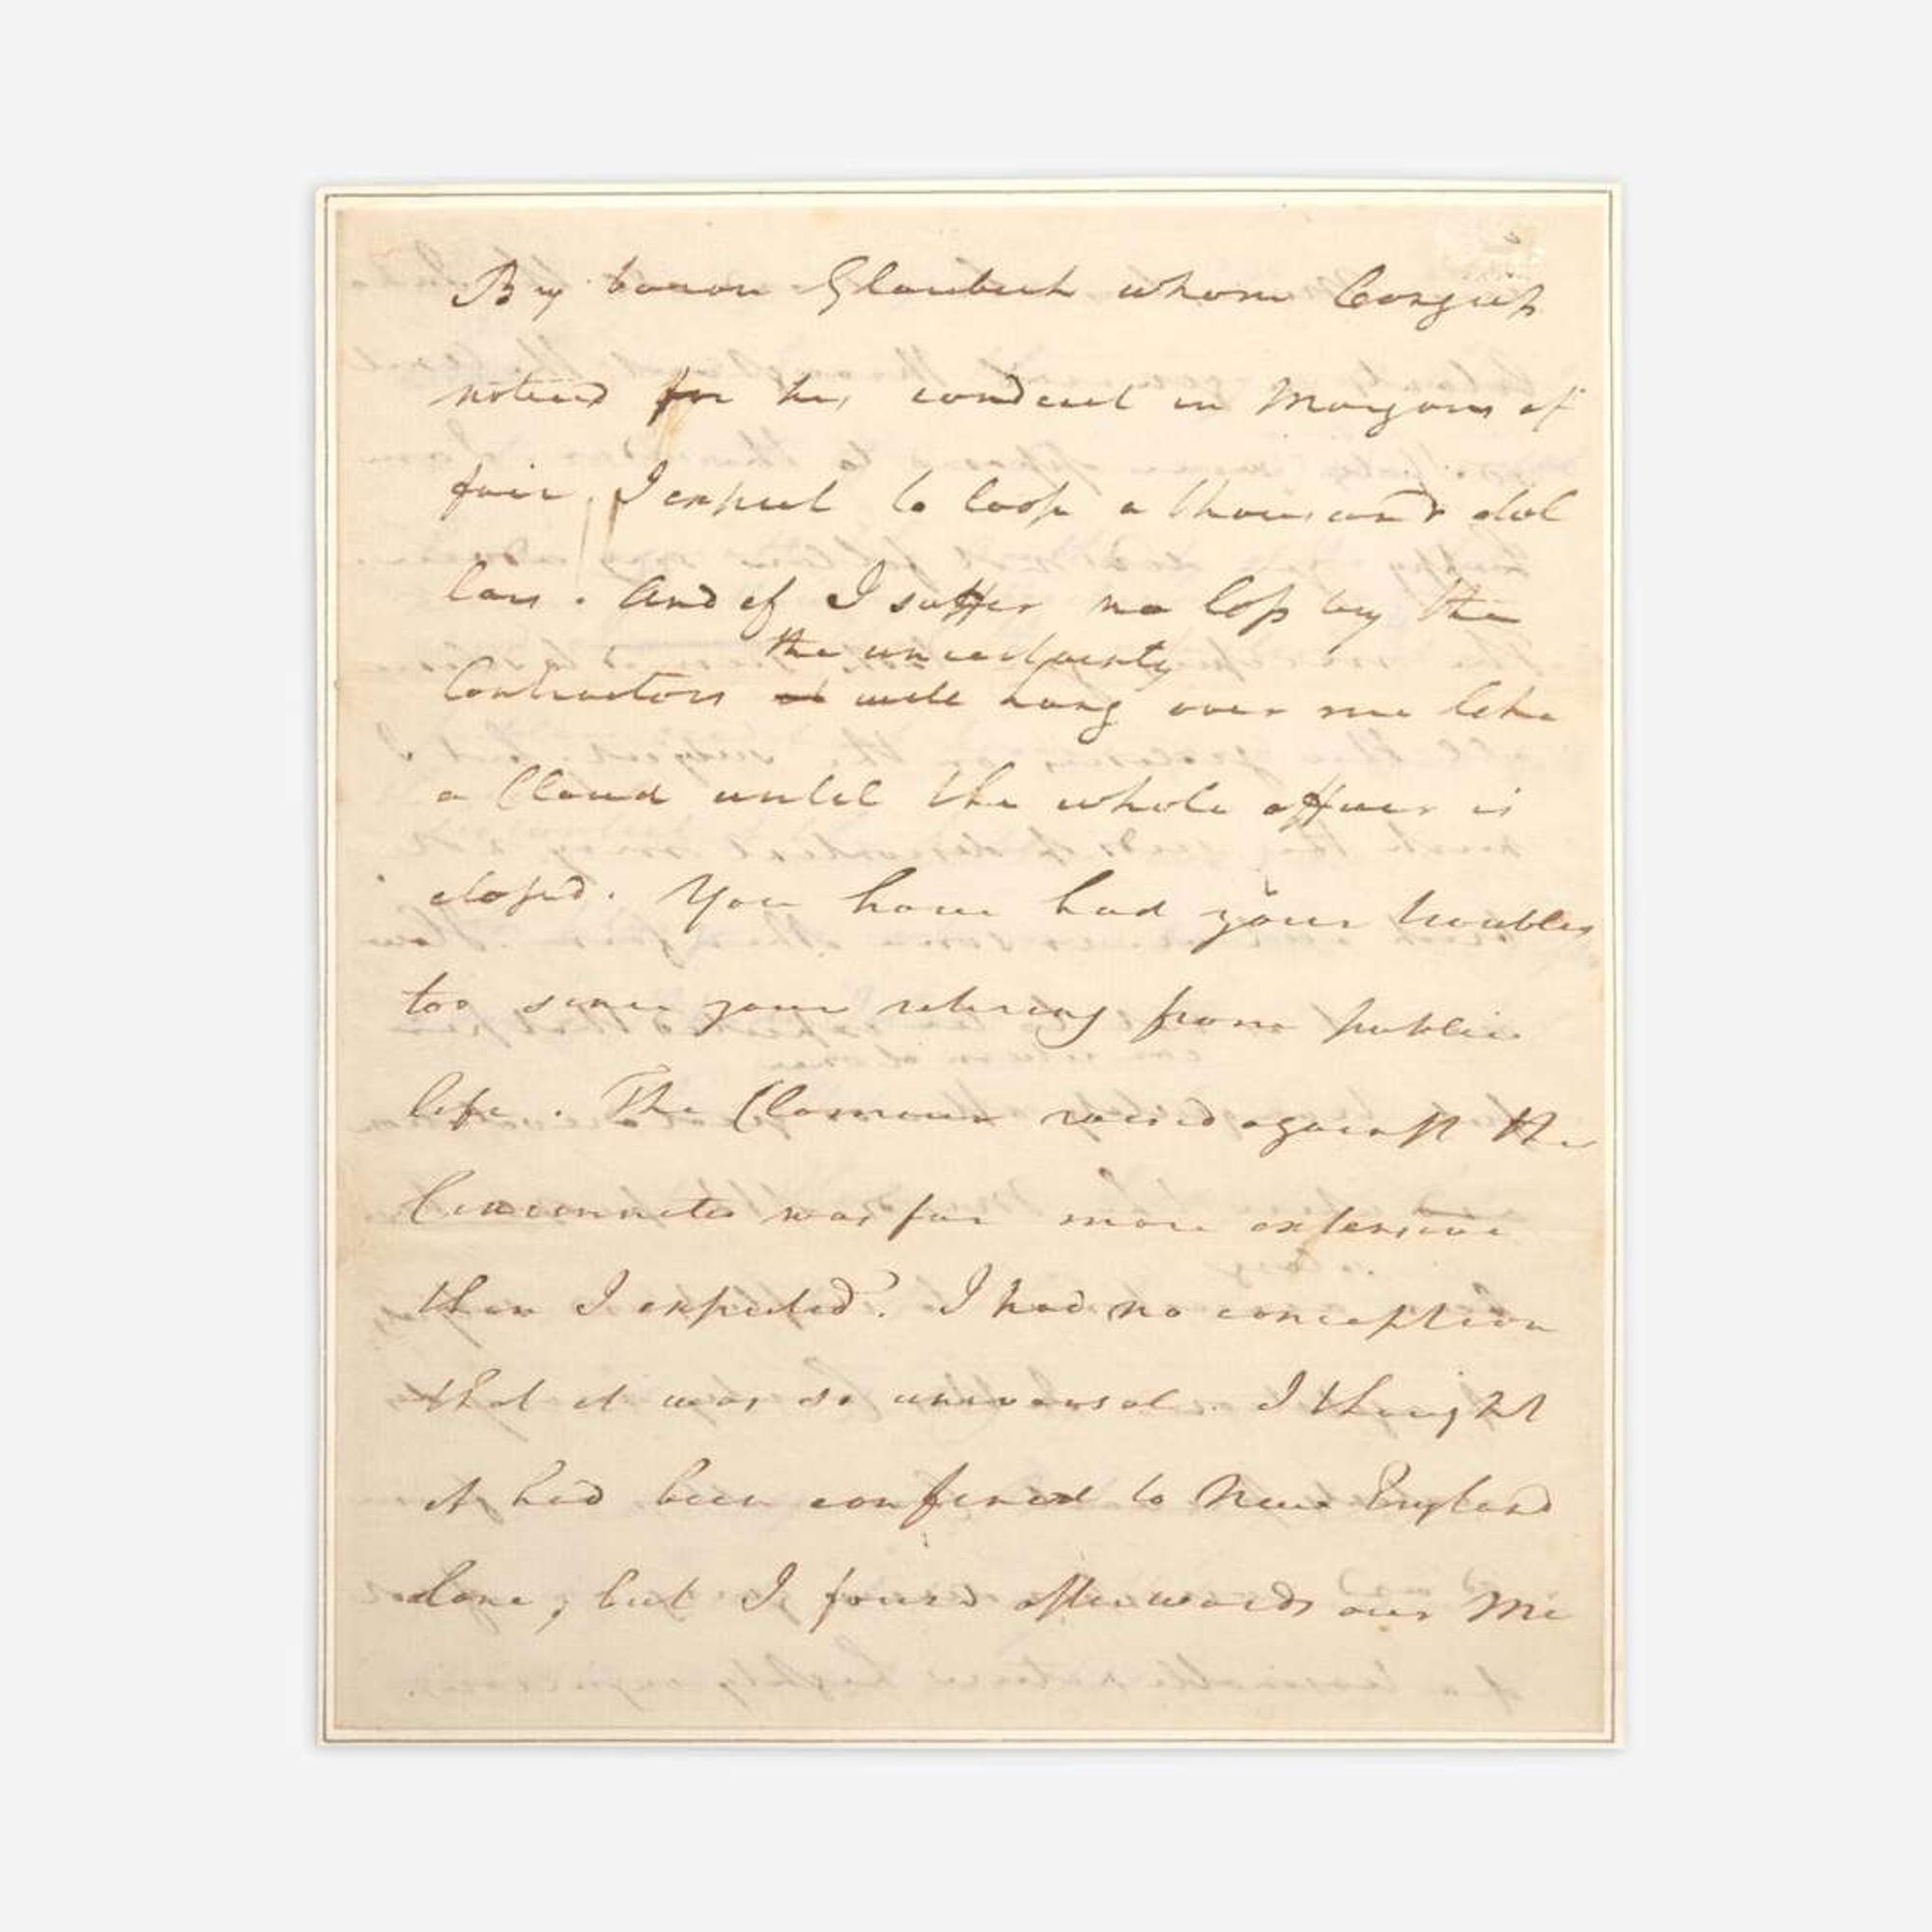 By baron Glaubeck whom Congress
noticed for his conduct in Morgans af
fair, I expect to loose a thousand dol
lars. And if I suffer no loss by the
the uncertainty
Contractors will hang over me like
a Cloud until the whole affair is
closed. You have had your troubles
too since your retiring from public
life. The Clamour raised against the
Cincinnati was far more extensive
than I expected. I had no conception
that it was so universal. I thought
it had been confined to New England
alone; but I found afterwards our Mi